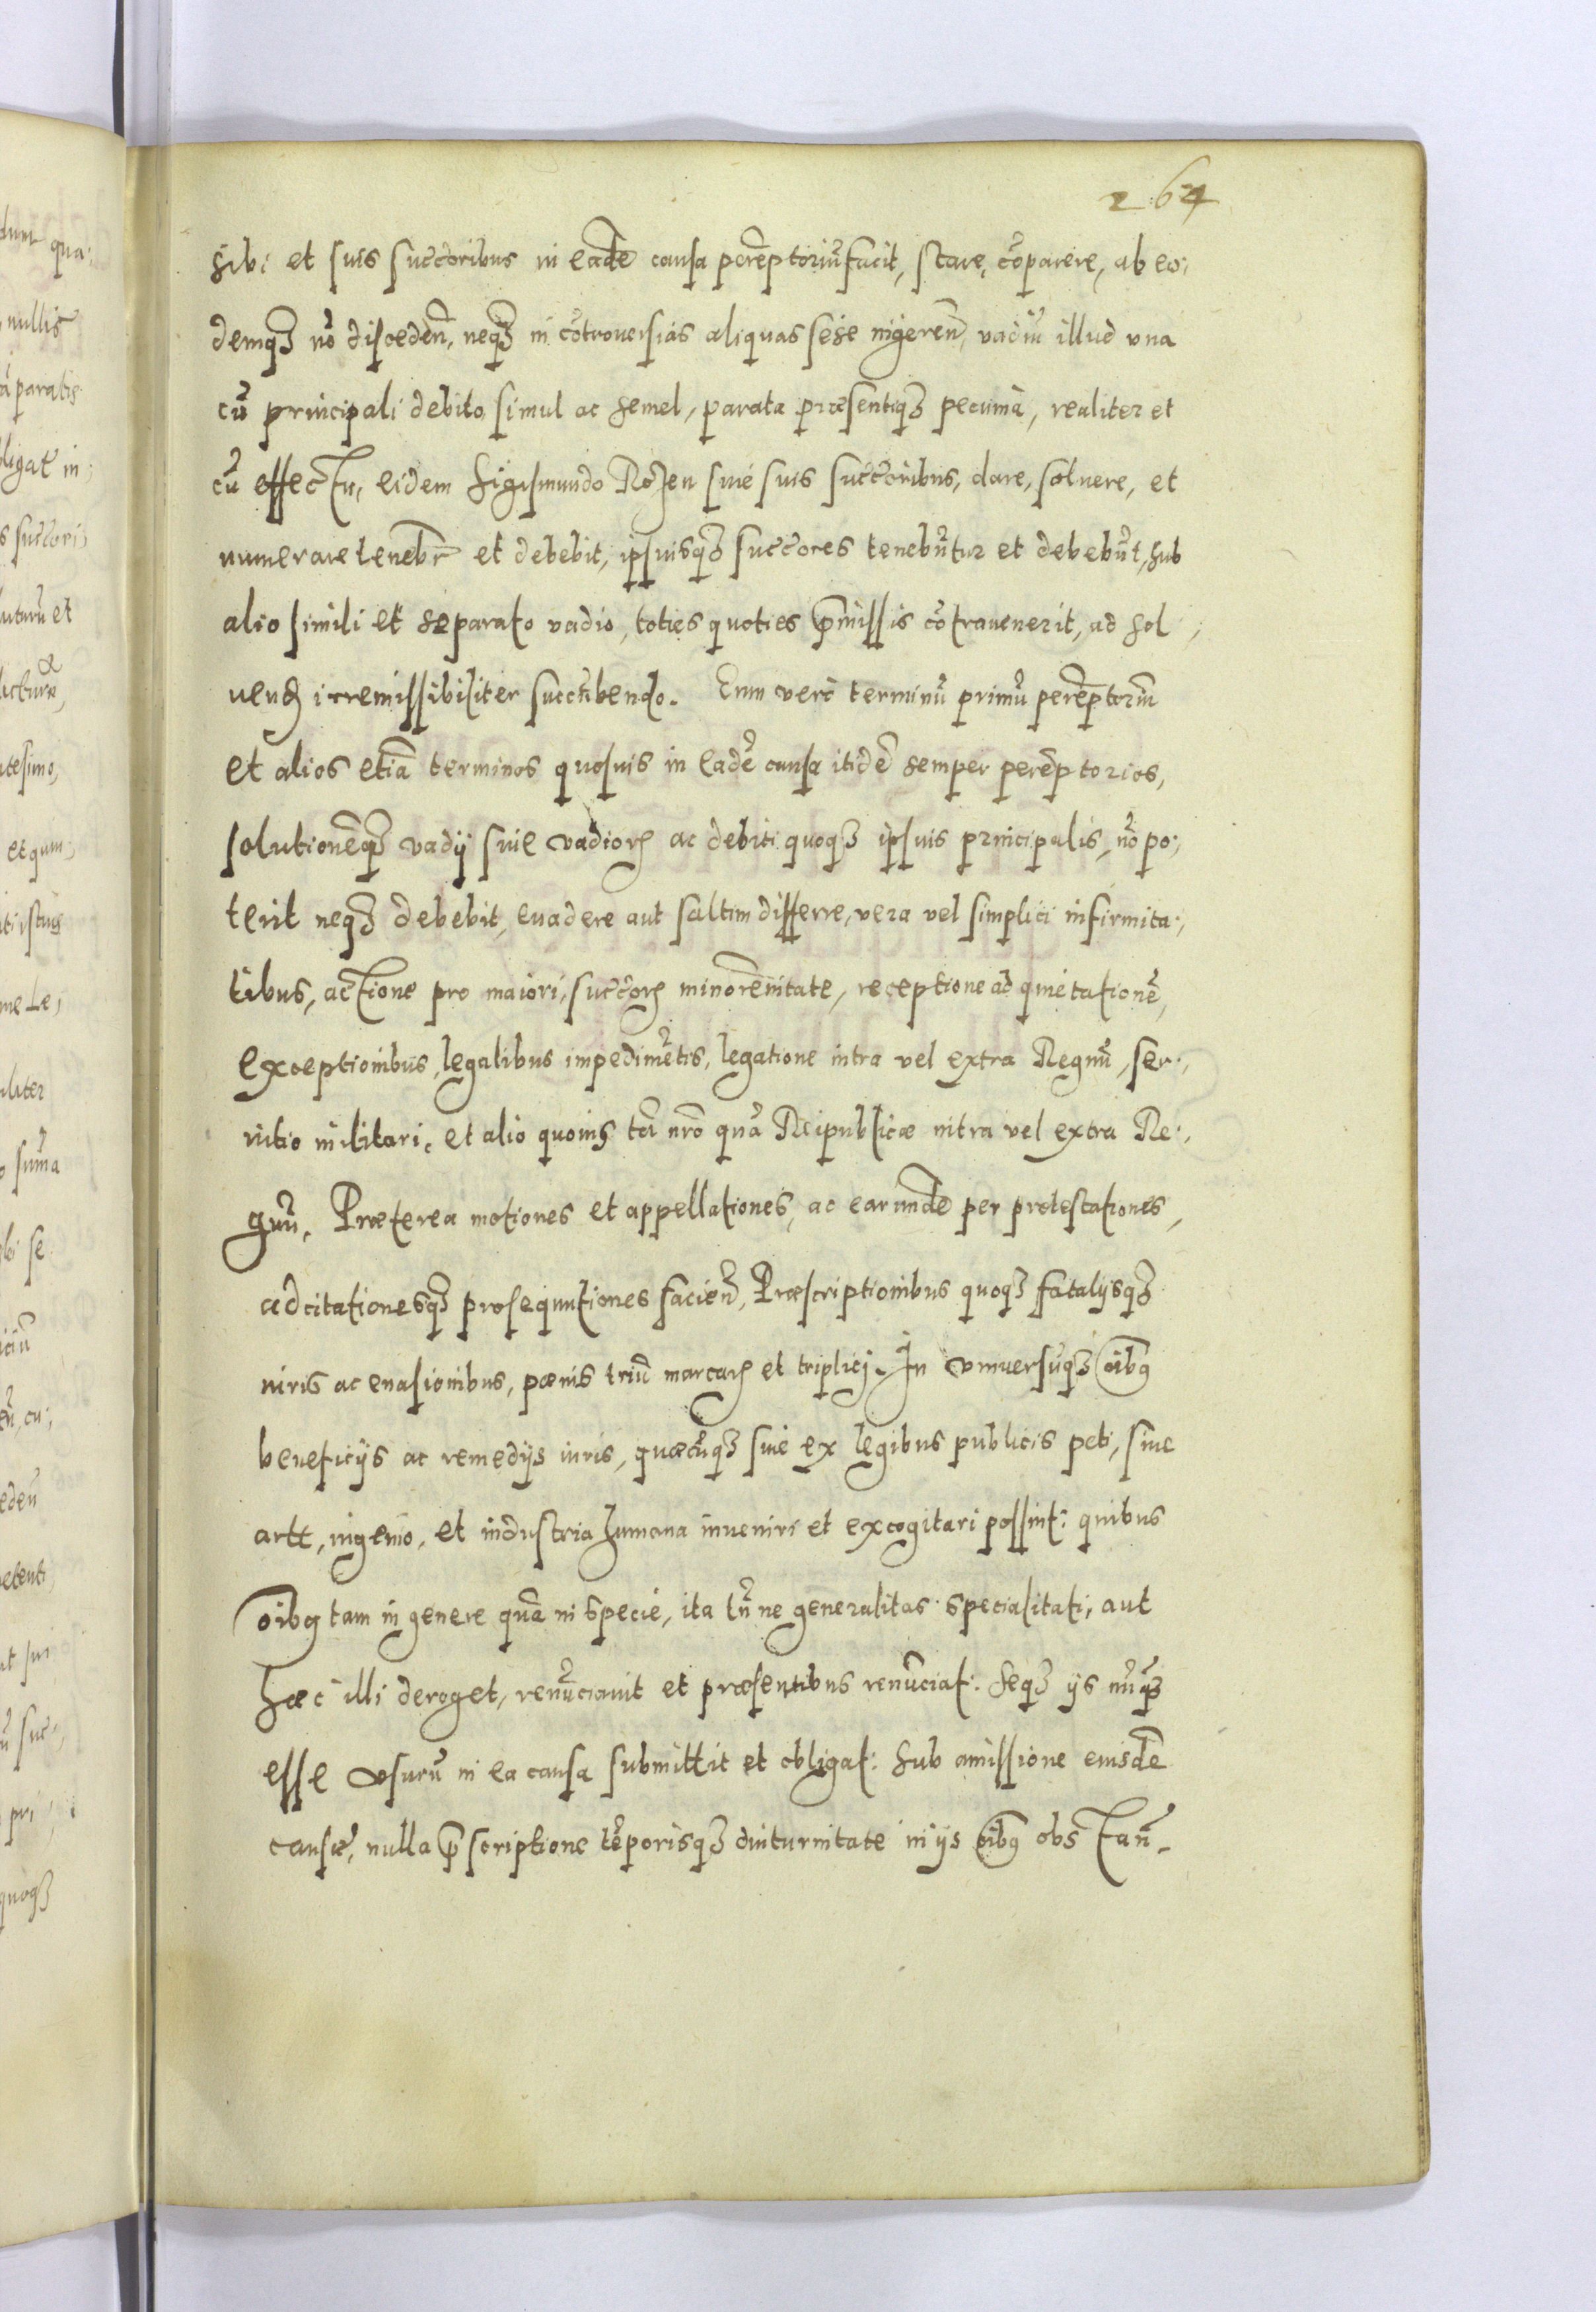 264
sibi et suis succoribus in eadē causa perēptoriū facit, stare, cōparere, ab eo:
demqз nō disceden̄, neqз in cōtrouersias aliquas sese ingeren̄, vadiū illud vna
cū principali debito simul ac semel, parata præsentiqз pecunia, realiter et
cū effectu, eidem Sigismundo Rozen siue suis succoribus, dare, soluere, et
numerare tenebr̄ et debebit, ipsiusqз succores tenebūtur et debebūt, sub
alio simili et separato vadio, toties quoties p̄missis cōtrauenerit, ad sol:
uend irremissibiliter succūbendo. Eum vero terminū primū perēptoriū
et alios etiā terminos quosuis in eadē causa itidē semper perēptorios,
solutionēqз vadij siue vadiorꝝ ac debiti quoqз ipsius principalis, nō po:
terit neqз debebit, euadere aut saltim differre, vera vel simplici infirmita:
tibus, actione pro maiori, succorꝝ minorēnitate, receptione ad quietationē,
exceptionibus, legalibus impedimētis, legatione intra vel extra Regnū, ser:
uitio militari, et alio quouis tā nr̄o quā Reipublicæ intra vel extra Re:
gnū. Præterea motiones et appellationes, ac earundē per protestationes,
adcitationesqз prosequutiones facien̄, Præscriptionibus quoqз fatalijsqз
iuris ac euasionibus, pænis triū marcarꝝ et triplici. In vniuersūqз oībꝯ
beneficijs ac remedijs iuris, quæcūqз siue ex legibus publicis peti, siue
arte, ingenio, et industria humana inueniri et excogitari possint: quibus
oībꝯ tam in genere quā in specie, ita tn̄ ne generalitas specialitati, aut
hæc illi deroget, renūciauit et præsentibus renūciat: seqз ijs nūqз
esse vsurū in ea causa submittit et obligat: sub amissione eiusdē
causæ, nulla p̄scriptione tēporisqз diuturnitate in ijs oībꝯ obstan̄.